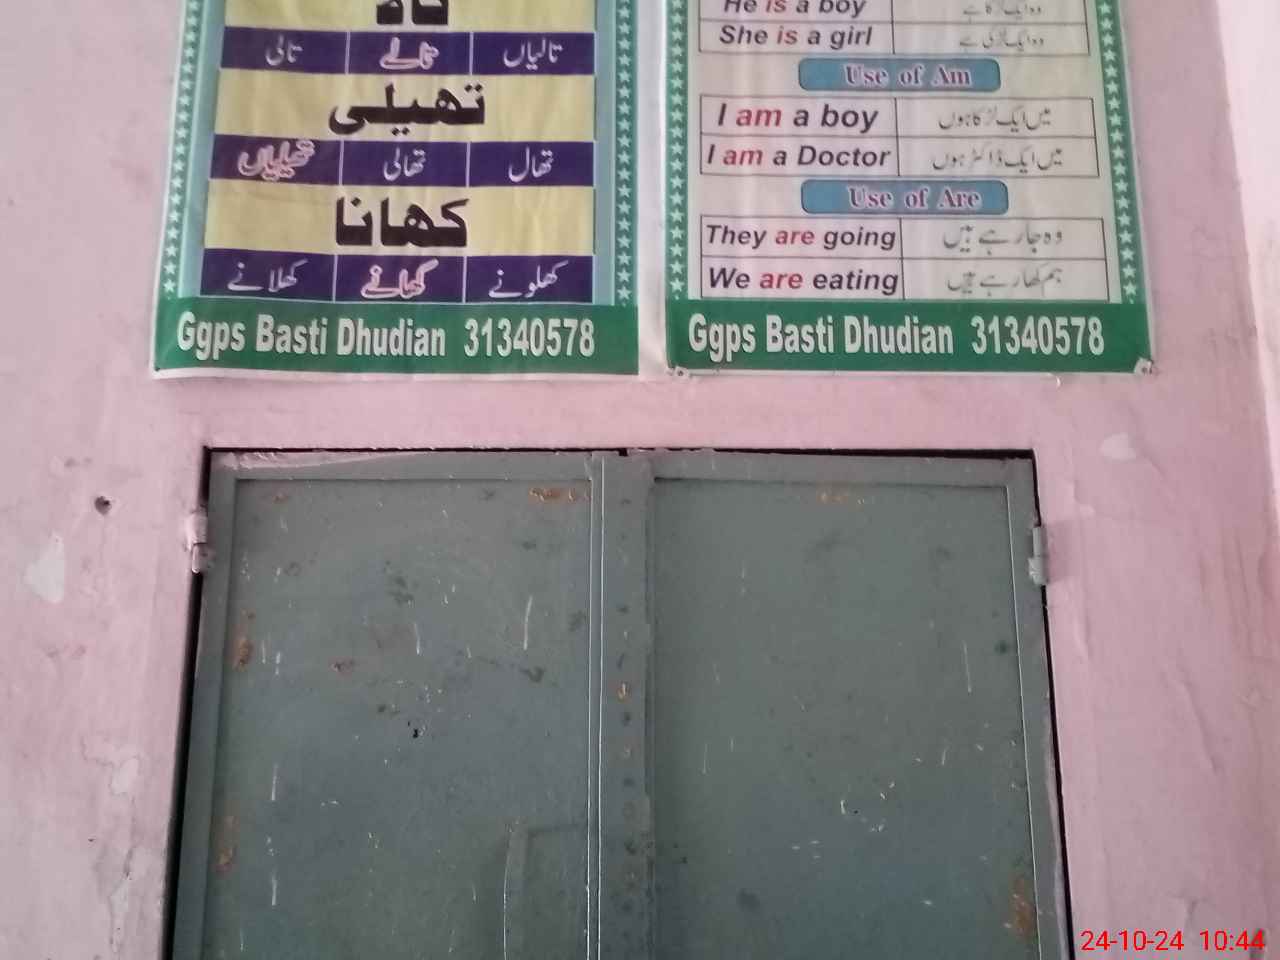 تالیاں تالے تالی
تھیلی
تھال تھالی تھیلیاں
کھانا
کھلونے کھانے کھلانے
Ggps Basti Dhudian 31340578
He is a boy وہ ایک لڑکا ہے
She is a girl وہ ایک لڑکی ہے
Use of Am
I am a boy میں ایک لڑکا ہوں
I am a Doctor میں ایک ڈاکٹر ہوں
Use of Are
They are going وہ جا رہے ہیں
We are eating ہم کھا رہے ہیں
Ggps Basti Dhudian 31340578
24-10-24 10:44